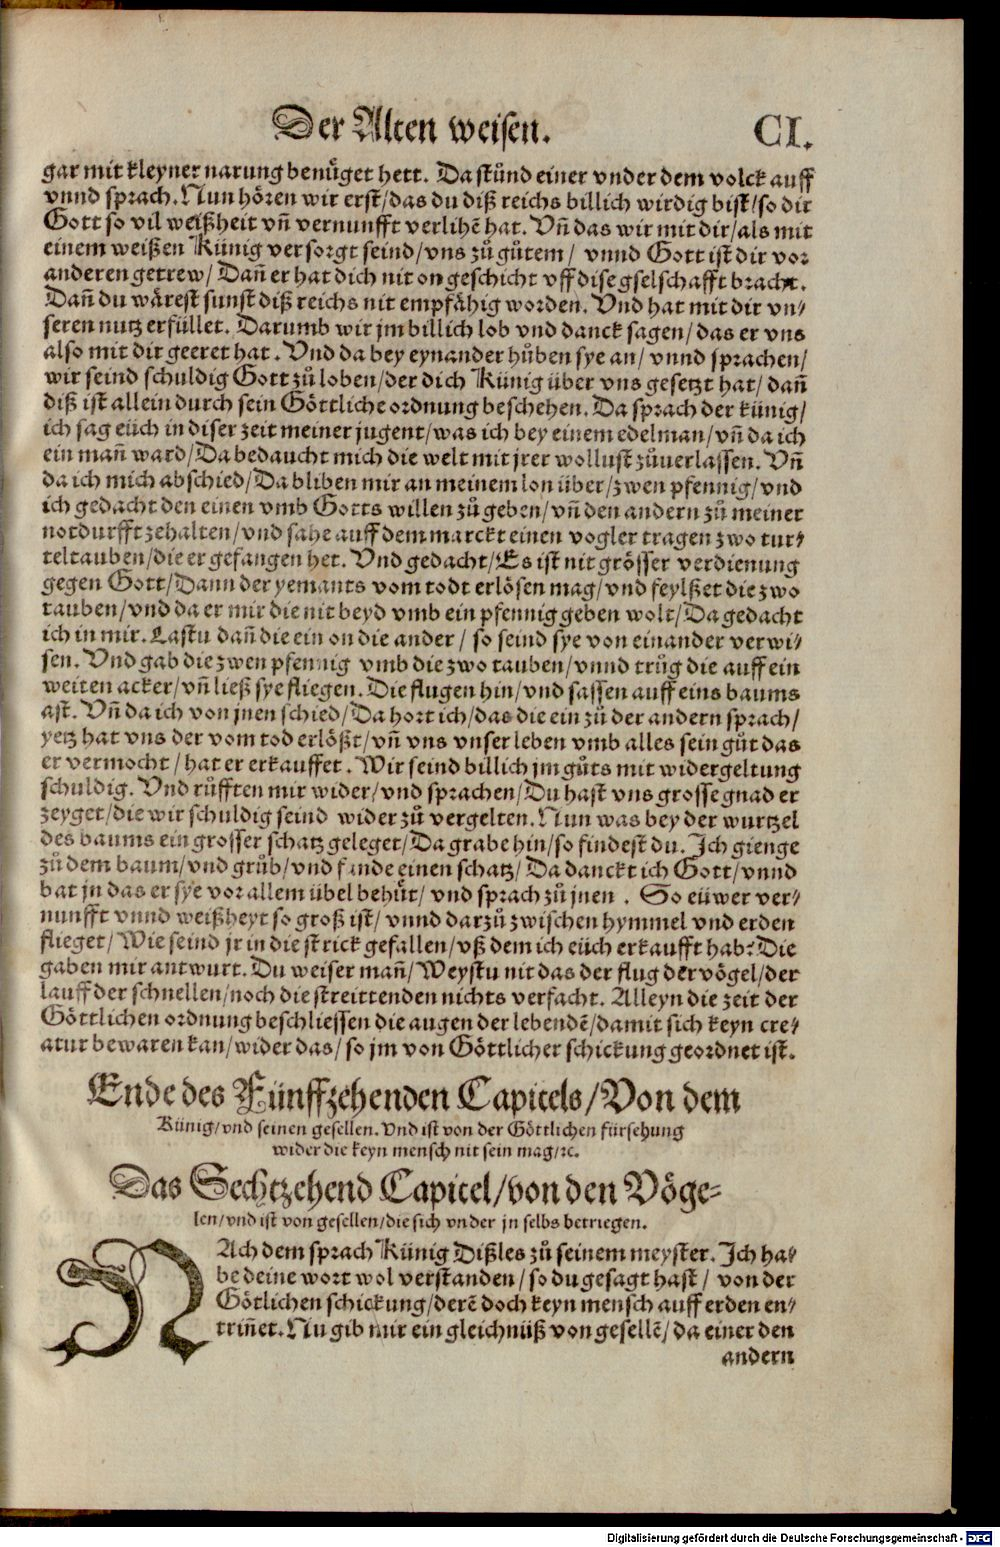 Der Alten weisen. CI.
gar mit kleyner narung benůget hett. Da stůnd einer vnder dem volck auff
vnnd sprach. Nun hören wir erst/das du diß reichs billich wirdig bist/so dir
Gott so vil weißheit vñ vernunfft verlihẽ hat. Vñ das wir mit dir/als mit
einem weißen Künig versorgt seind/vns zů gůtem/ vnnd Gott ist dir vor
anderen getrew/ Dañ er hat dich nit on geschicht vff dise gselschafft bracht.
Dañ du wärest sunst diß reichs nit empfähig worden. Vnd hat mit dir vn/
seren nutz erfüllet. Darumb wir jm billich lob vnd danck sagen/das er vns
also mit dir geeret hat. Vnd da bey eynander hůben sye an/ vnnd sprachen/
wir seind schuldig Gott zů loben/der dich Künig über vns gesetzt hat/ dañ
diß ist allein durch sein Göttliche ordnung beschehen. Da sprach der künig/
ich sag eüch in diser zeit meiner jugent/was ich bey einem edelman/vñ da ich
ein mañ ward/Da bedaucht mich die welt mit jrer wollust zůuerlassen. Vñ
da ich mich abschied/Da bliben mir an meinem lon über/zwen pfennig/vnd
ich gedacht den einen vmb Gotts willen zů geben/vñ den andern zů meiner
notdurfft zehalten/vnd sahe auff dem marckt einen vogler tragen zwo tur/
teltauben/die er gefangen het. Vnd gedacht/Es ist nit grösser verdienung
gegen Gott/Dann der yemants vom todt erlösen mag/vnd feylßet die zwo
tauben/vnd da er mir die nit beyd vmb ein pfennig geben wolt/Da gedacht
ich in mir. Lastu dañ die ein on die ander/ so seind sye von einander verwi/
sen. Vnd gab die zwen pfennig vmb die zwo tauben/vnnd trůg die auff ein
weiten acker/vñ ließ sye fliegen. Die flugen hin/vnd sassen auff eins baums
ast. Vñ da ich von jnen schied/Da hort ich/das die ein zů der andern sprach/
yetz hat vns der vom tod erlößt/vñ vns vnser leben vmb alles sein gůt das
er vermocht/hat er erkauffet. Wir seind billich jm gůts mit widergeltung
schuldig. Vnd růfften mir wider/vnd sprachen/Du hast vns grosse gnad er
zeyget/die wir schuldig seind wider zů vergelten. Nun was bey der wurtzel
des baums ein grosser schatz geleget/Da grabe hin/so findest du. Ich gienge
zů dem baum/vnd grůb/vnd fande einen schatz/ Da danckt ich Gott/vnnd
bat jn das er sye vor allem übel behůt/ vnd sprach zů jnen. So eüwer ver/
nunfft vnnd weißheyt so groß ist/ vnnd darzů zwischen hymmel vnd erden
flieget/ Wie seind jr in die strick gefallen/vß dem ich eüch erkaufft hab? Die
gaben mir antwurt. Du weiser mañ/ Weystu nit das der flug der vögel/der
lauff der schnellen/noch die streittenden nichts verfacht. Alleyn die zeit der
Göttlichen ordnung beschliessen die augen der lebendẽ/damit sich keyn cre/
atur bewaren kan/wider das/so jm von Göttlicher schickung geordnet ist.
Ende des Fünffzehenden Capitels/Von dem
Künig/vnd seinen gesellen. Vnd ist von der Göttlichen fürsehung
wider die keyn mensch nit sein mag/ꝛc.
Das Sechtzehend Capitel/von den Vöge-
len/vnd ist von gesellen/die sich vnder jn selbs betriegen.
NAch dem sprach Künig Dißles zů seinem meyster. Ich ha/
be deine wort wol verstanden/so du gesagt hast/ von der
Götlichen schickung/derẽ doch keyn mensch auff erden en/
triñet. Nu gib mir ein gleichnüß von gesellẽ/da einer den
andern
Digitalisierung gefördert durch die Deutsche Forschungsgemeinschaft - DFG